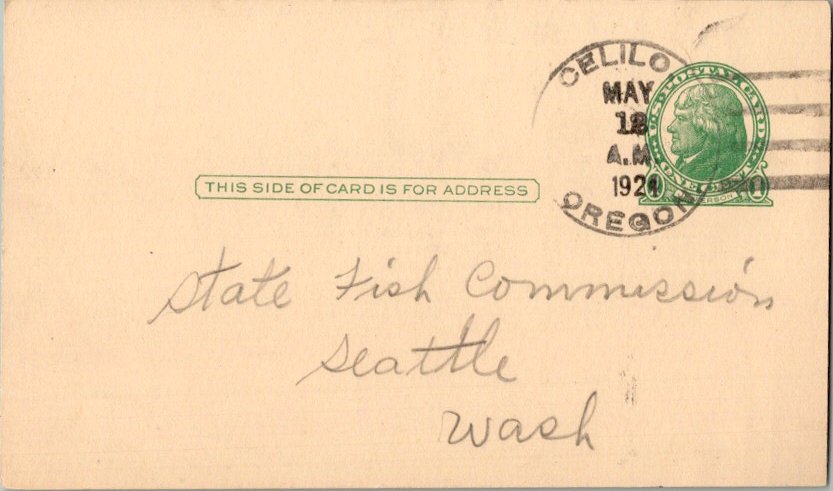 CELILO
MAY
18
A.M.
1924
OREGON
U.S. POSTAL CARD
ONE CENT
1 JEFFERSON 1
THIS SIDE OF CARD IS FOR ADDRESS
State Fish Commission
Seattle
Wash